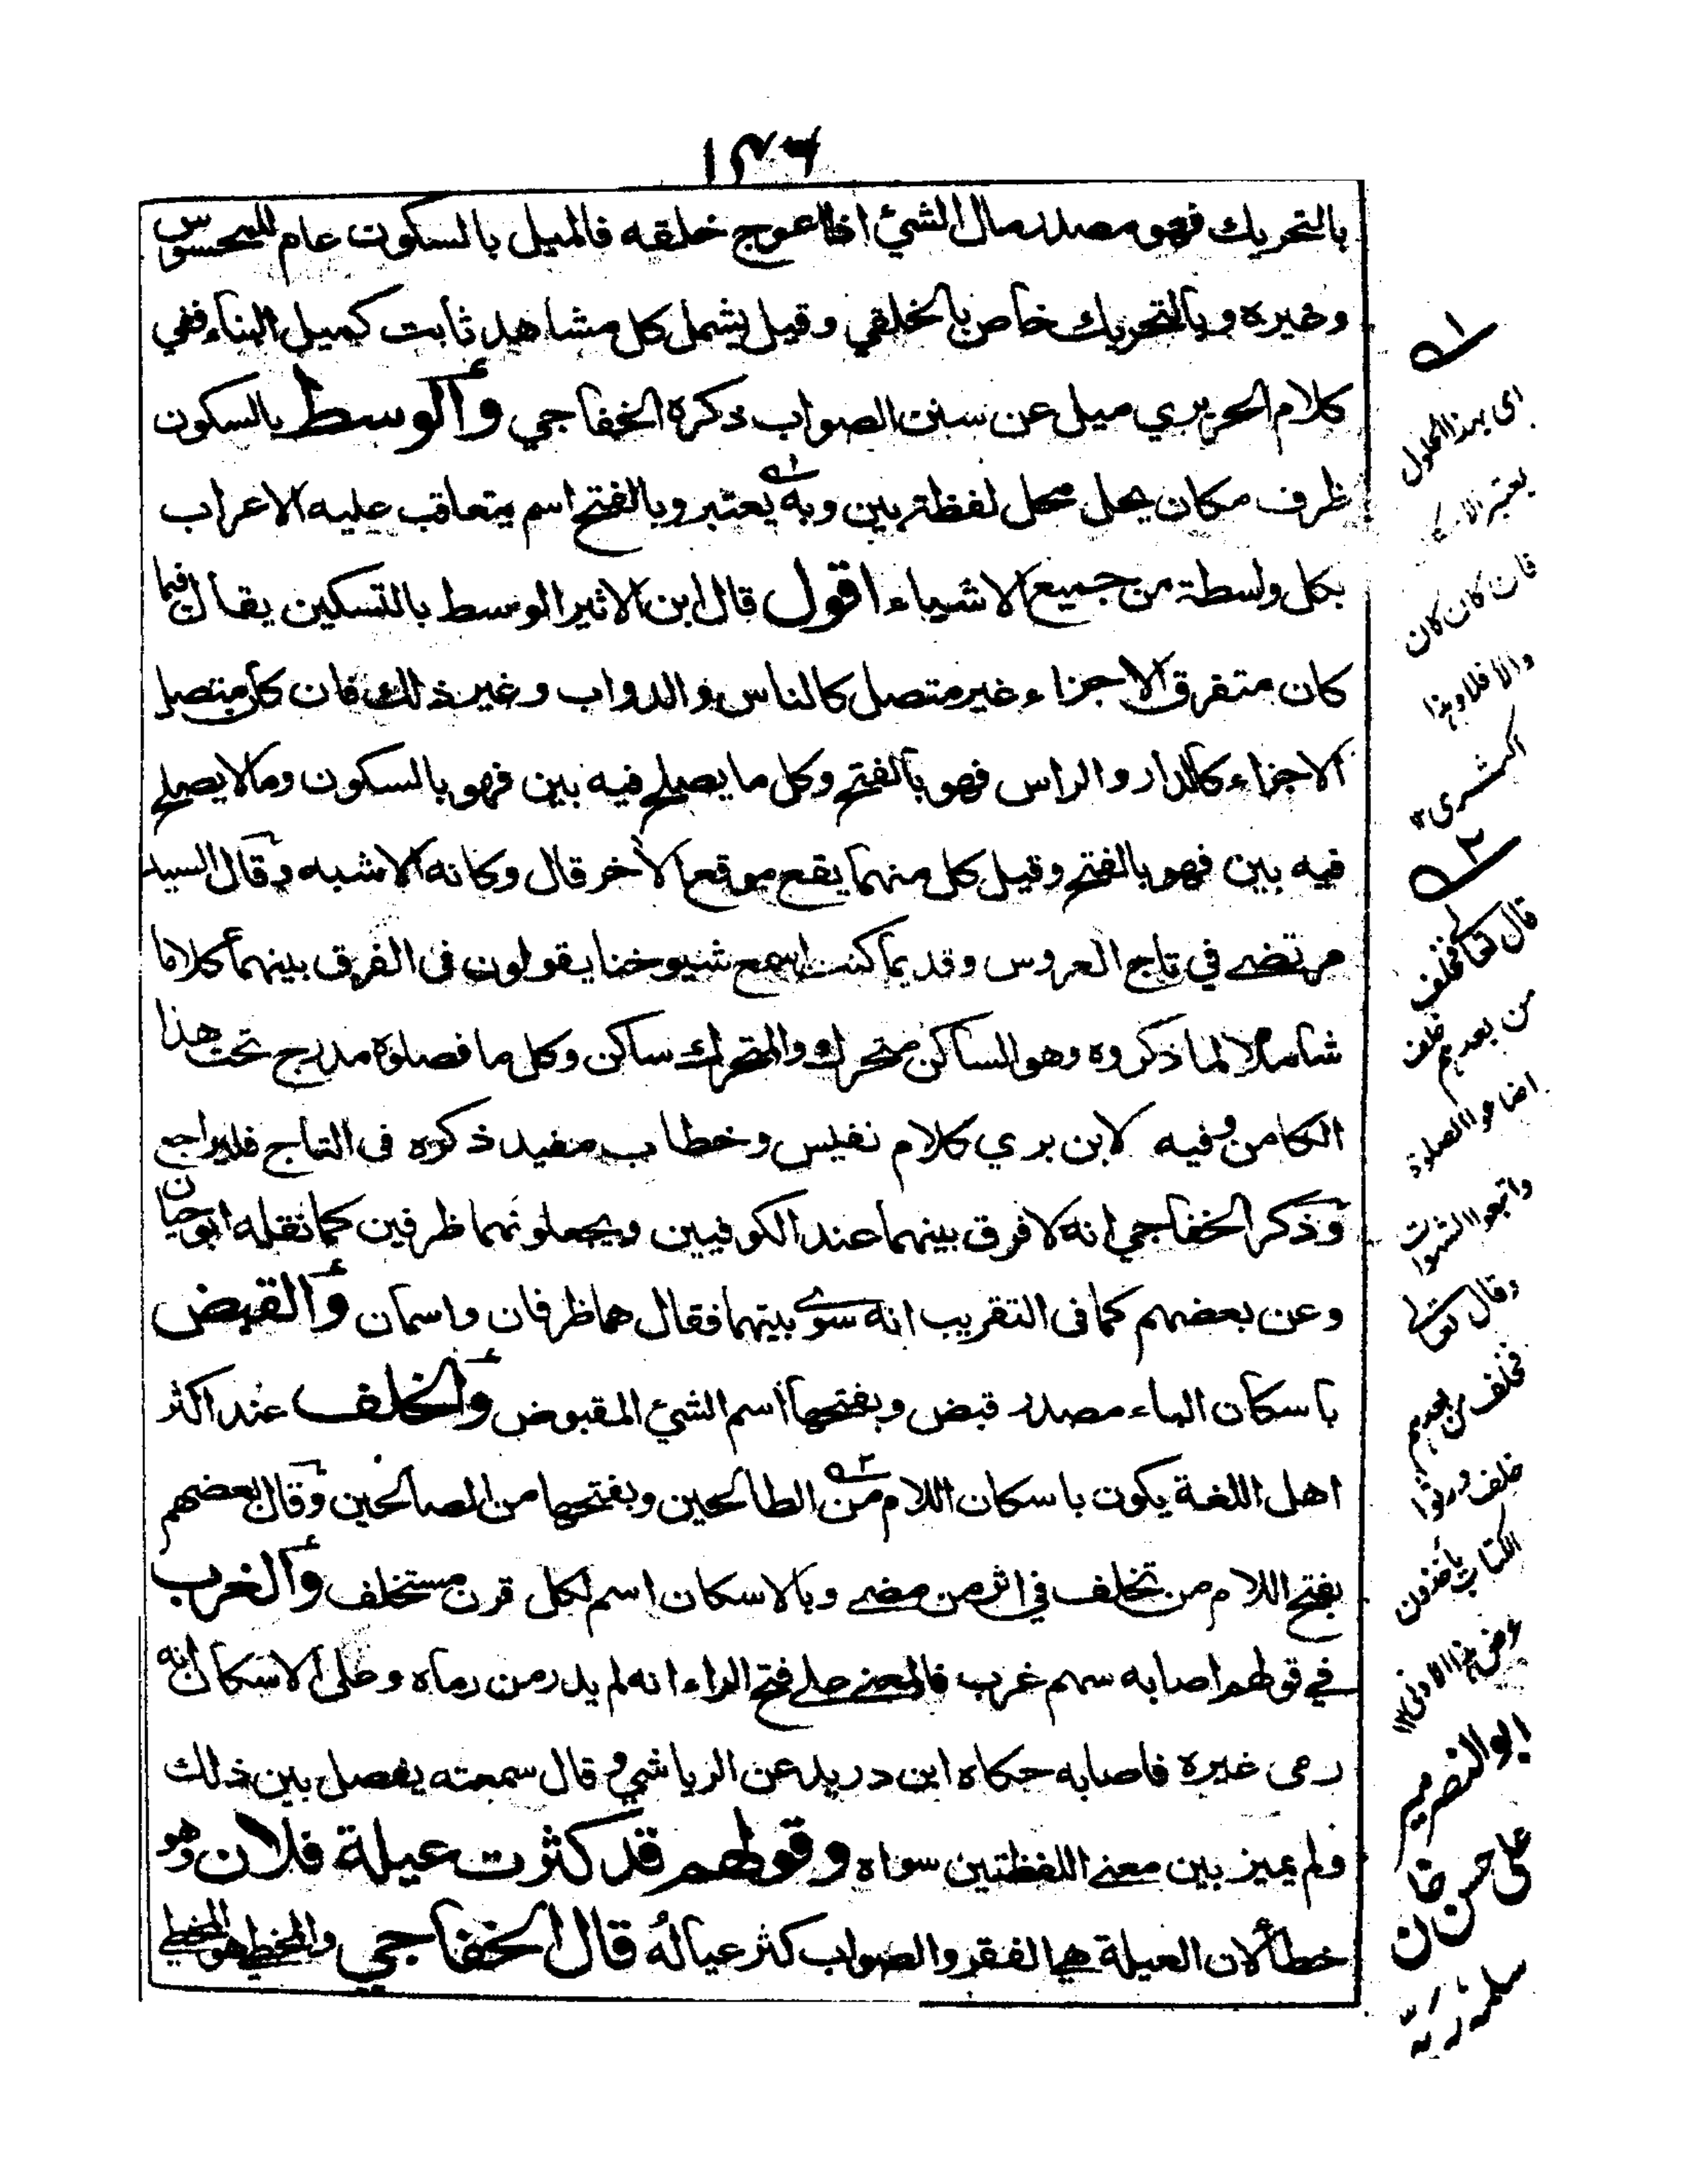 ١٣٦
بالتحريك فهو مصدر مال الشيئ اذا اعوج خلقه فالميل بالسكون عام للمحسوس
وغيره وبالتحريك خاص بالخلقي وقيل يشمل كل مشاهد ثابت كميل البناء ففي
كلام الحريري ميل عن سنن الصواب ذكره الخفاجي وألوسط بالسكون
ظرف مكان يحل محل لفظة بين وبه يعتبر وبالفتح اسم يتعاقب عليه الاعراب
بكل واسطة من جميع الاشياء اقول قال ابن الاثير الوسط بالتسكين يقال فيما
كان متفرق الاجزاء غير متصل كالناس والدواب وغير ذلك فان كان متصل
الاجزاء كالدار والراس فهو بالفتح وكل ما يصلح فيه بين فهو بالسكون ومالا يصلح
فيه بين فهو بالفتح وقيل كل منهما يقع موقع الأخر قال وكانه الاشبه وقال السيد
مرتضے في تاج العروس وقديما كنت اسمع شيوخنا يقولون فى الفرق بينهما كلاما
شاملا لما ذكروه وهو الساكن متحرك والمتحرك ساكن وكل ما فصلوه مدرج تحت هذا
الكامن وفيه لابن بري كلام نفيس وخطاب مفيد ذكره فى التاج فليراجع
وذكر الخفاجي انه لا فرق بينهما عند الكوفيين ويجعلونهما ظرفين كما نقله ابو حيان
وعن بعضهم كما فى التقريب انه سوے بينهما فقال هما ظرفان واسمان وألقبض
باسكان الباء مصدر قبض وبفتحها اسم الشيئ المقبوض وألخلف عند اكثر
اهل اللغة يكون باسكان اللام من الطالحين وبفتحها من الصالحين وقال بعضهم
بفتح اللام من تخلف في اثر من مضے وبالاسكان اسم لكل قرن مستخلف وألغرب
في قولهم اصابه سهم غرب فالمعنے علے فتح الراء انه لم يدر من رماه وعلى الاسكان انه
رمى غيره فاصابه حكاه ابن دريد عن الرياشي وقال سمعته يفصل بين ذلك
ولم يميز بين معنے اللفظتين سواه وقولهم قد كثرت عيلة فلان وهو
خطأ لان العيلة هي الفقر والصواب كثر عياله قال الخفاجي والمخطي هو المخطي
١
اى بهذا الحلول
يعتبر
فان كان كان
والا فلا وهذا
٢
قال تعالى فخلف
من بعدهم خلف
اضاعوا الصلوة
واتبعوا الشهوات
وقال تعالى
فخلف من بعدهم
خلف ورثوا
الكتاب يأخذون
عرض هذا الادنى ١٢
ابو النصر مير
على حسن خان
سلمه ربه